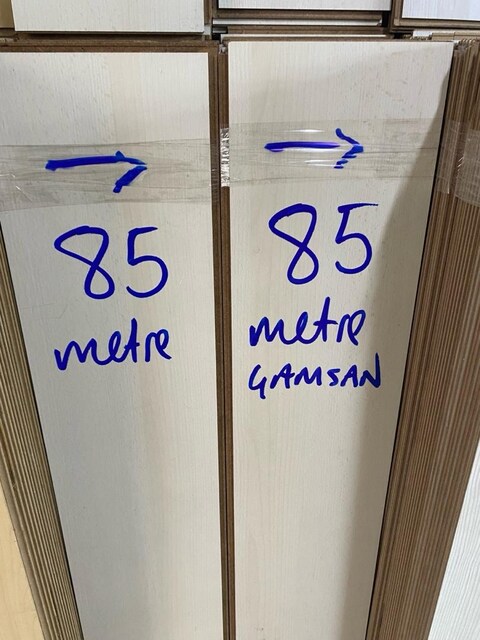 85
metre
85
metre
GAMSAN